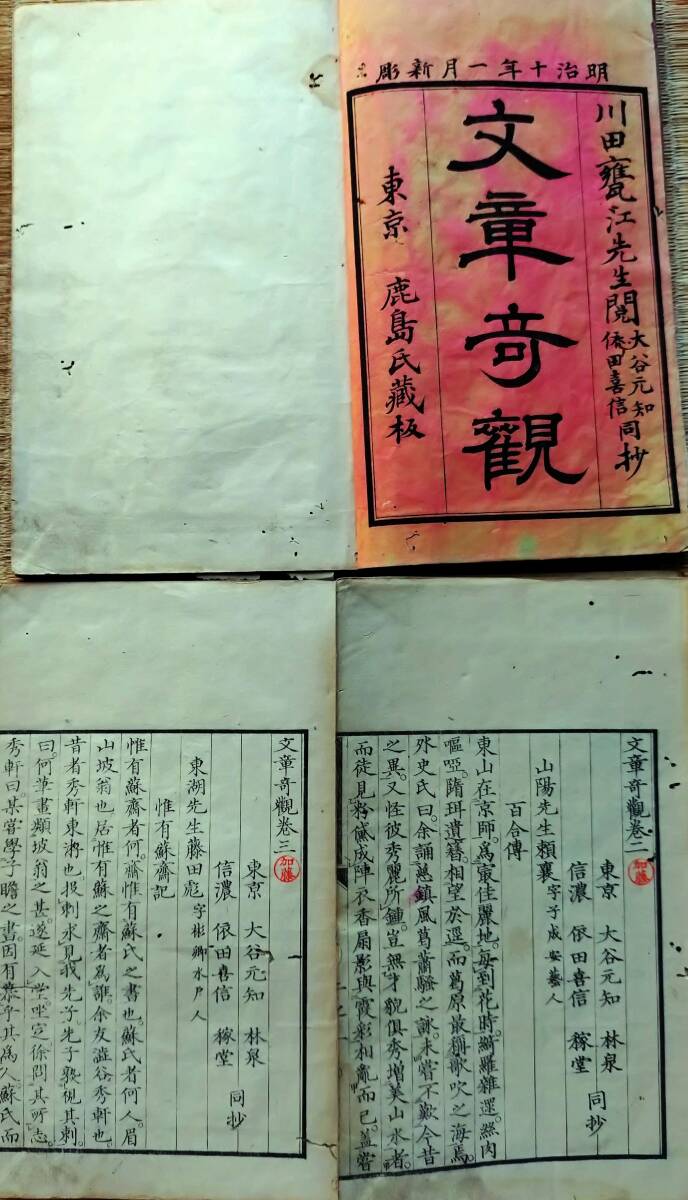 明治十年一月新彫
川田甕江先生閲 大谷元知 依田喜信 同抄
文章奇觀
東京 鹿島氏藏板
文章奇觀巻二
加藤
東京 大谷元知 林泉
信濃 依田喜信 稼堂 同抄
山陽先生頼襄 字子成安藝人
百合傳
東山在京師。爲最佳麗地。每到花時。綺羅雜遝。絲肉
嘔啞。隋珥遺簪。相望於逕。而葛原最稱歌吹之海焉。
外史氏曰。余誦慈鎮風葛蕭騷之詠。未嘗不歎今昔
之異。又怪彼秀麗所鍾。豈無才貌俱秀。增美山水者。
而徒見粉黛成陣。衣香扇影。與霞彩相亂而已。蓋嘗
文章奇觀巻三
加藤
東京 大谷元知 林泉
信濃 依田喜信 稼堂 同抄
東湖先生藤田彪 字彬卿水戸人
惟有蘇齋記
惟有蘇齋者何。齋惟有蘇氏之書也。蘇氏者何人。眉
山坡翁也。居惟有蘇之齋者爲誰。余友澁谷秀軒也。
昔者秀軒東游也。投刺求見我先子。先子熟視其刺。
曰。何筆畫類坡翁之甚。遂延入坐。坐定。徐問其所志。
秀軒曰。某嘗學子瞻之書。因有慕乎其爲人。蘇氏而